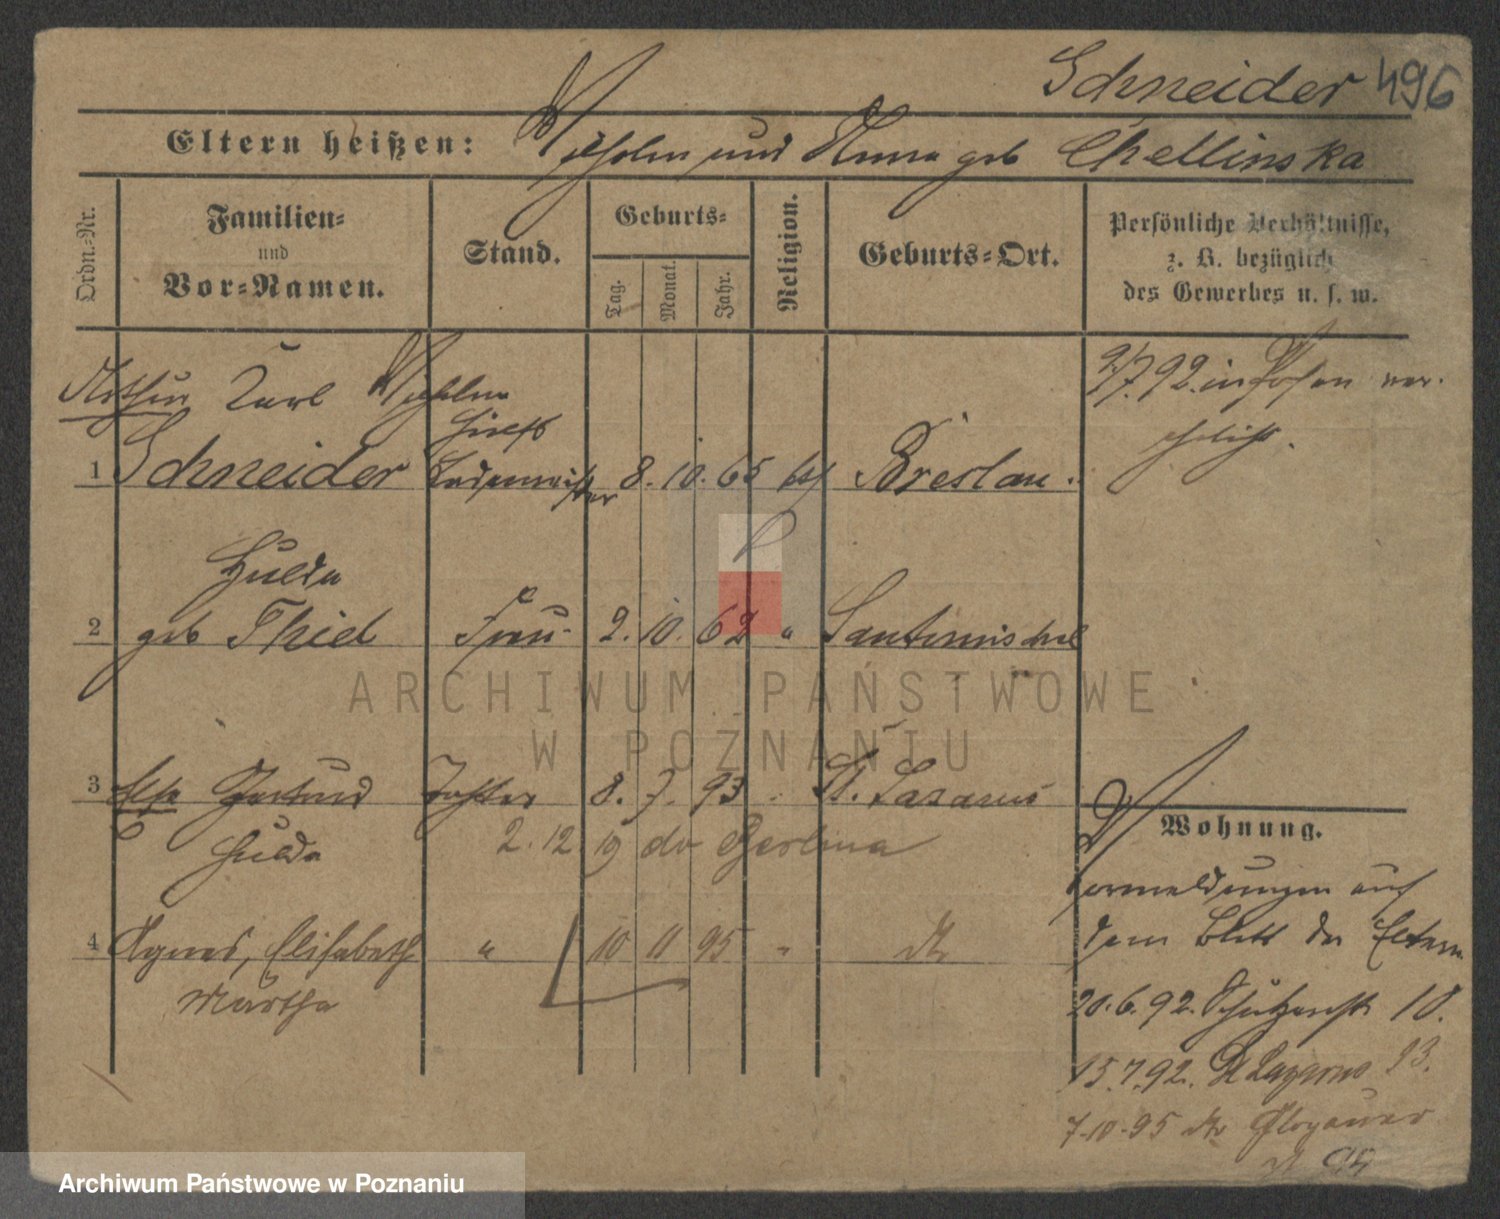 Schneider 496
Eltern heißen: Wilhelm und Anna geb Chellinska
Ordn.-Nr.
Familien-
und
Vor-Namen.
Stand.
Geburts-
Tag.
Monat.
Jahr.
Religion.
Geburts-Ort.
Persönliche Verhältnisse,
z. B. bezüglich
des Gewerbes u. s. w.
Arthur Carl Wilhelm
1 Schneider 8. 10. 65 Breslau.
2/7.92. in Posen ver-
ehelicht.
Hulda
2 geb Thiel Frau 2. 10. 62 " Santomischel
3 Else Gertrud Tochter 8. 7. 93 St. Lazarus
Hulda
2. 12. 19 Berlina
4 Agnes, Elisabeth " 10 11 95 "
Martha
Wohnung.
Vormeldungen auf
dem Blatt der Eltern
20.6.92. Schützenstr 10.
15.7.92. St Lazarus 23.
7.10.95 Glogauer
ARCHIWUM PAŃSTWOWE
W POZNANIU
Archiwum Państwowe w Poznaniu